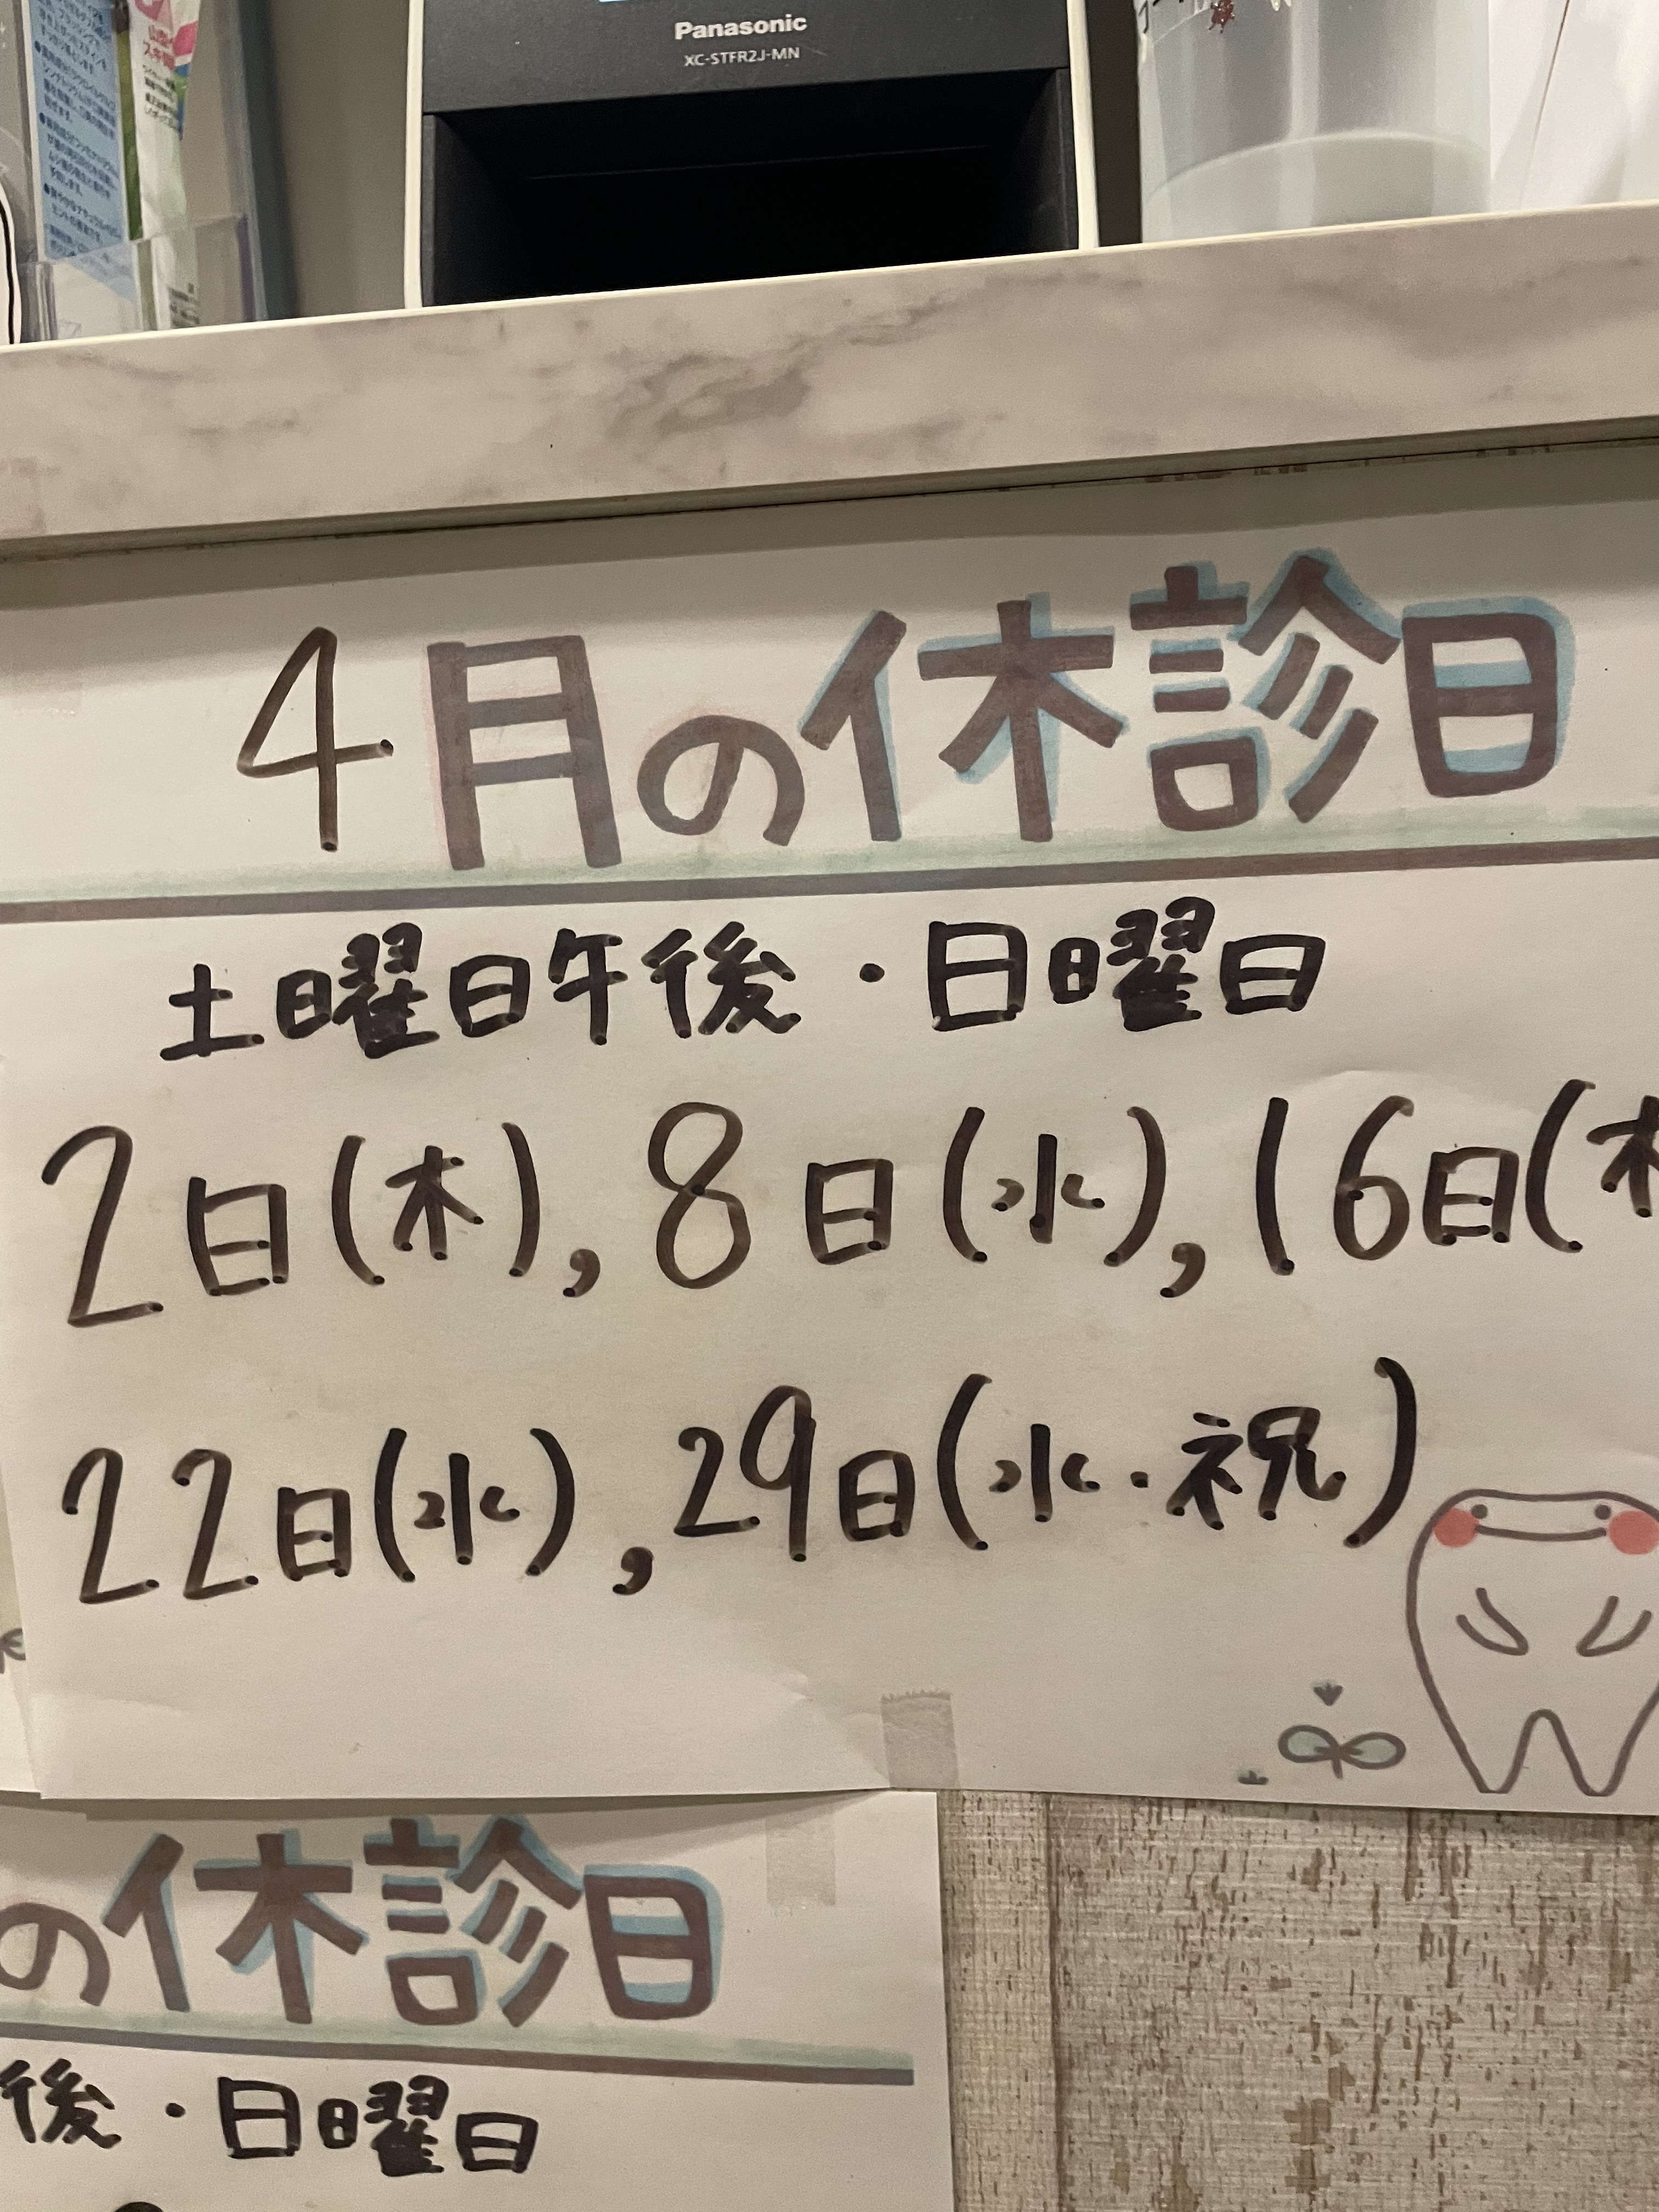 Panasonic
XC-STFR2J-MN
4月の休診日
土曜日午後・日曜日
2日(木),8日(水),16日(木
22日(水),29日(水・祝)
の休診日
後・日曜日